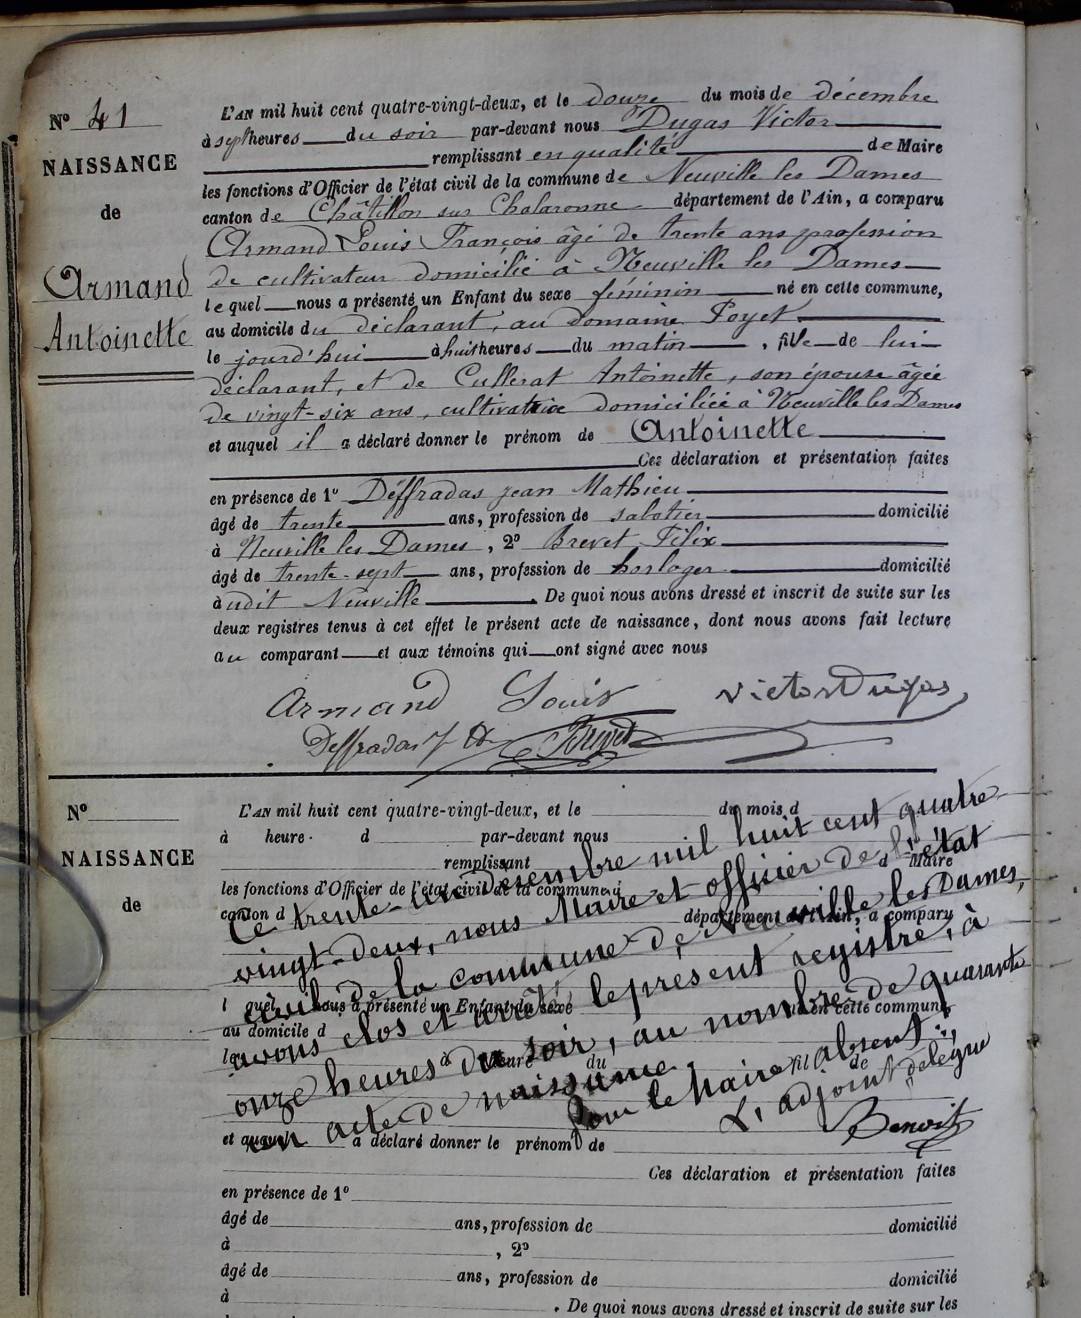 N° 41
NAISSANCE
de
Armand
Antoinette
L'AN mil huit cent quatre-vingt-deux, et le douze du mois de décembre
à sept heures du soir par-devant nous Dugas Victor
remplissant en qualité de Maire
les fonctions d'Officier de l'état civil de la commune de Neuville les Dames
canton de Châtillon sur Chalaronne département de l'Ain, a comparu
Armand Louis François âgé de trente ans profession
de cultivateur domicilié à Neuville les Dames
lequel nous a présenté un Enfant du sexe féminin né en cette commune,
au domicile du déclarant, au domaine Poyet
le jourd'hui à huit heures du matin, fille de lui
déclarant, et de Cullerat Antoinette, son épouse âgée
de vingt-six ans, cultivatrice domiciliée à Neuville les Dames
et auquel il a déclaré donner le prénom de Antoinette
Ces déclaration et présentation faites
en présence de 1° Déffradas jean Mathieu
âgé de trente ans, profession de sabotier domicilié
à Neuville les Dames, 2° Brevet Félix
âgé de trente-sept ans, profession de horloger domicilié
audit Neuville. De quoi nous avons dressé et inscrit de suite sur les
deux registres tenus à cet effet le présent acte de naissance, dont nous avons fait lecture
au comparant et aux témoins qui ont signé avec nous
Armand Louis Victor Dugas
Deffradas Brevet
N°
NAISSANCE
de
L'AN mil huit cent quatre-vingt-deux, et le du mois d
à heure d par-devant nous
remplissant d Maire
les fonctions d'Officier de l'état civil de la commune d
canton d département de l'Ain, a comparu
l quel nous a présenté un Enfant du sexe né en cette commune,
au domicile d
le à heure du fil de
et auquel a déclaré donner le prénom de
Ce trente-un Désembre mil huit cent quatre
vingt-deux, nous Maire et officier de l'état
civil de la commune de Neuville les Dames,
avons clos et arrêté le présent registre, à
onze heures du soir, au nombre de quarante
un acte de naissance
Pour le Maire absent:
L'adjoint délégué
Benoit
Ces déclaration et présentation faites
en présence de 1°
âgé de ans, profession de domicilié
à , 2°
âgé de ans, profession de domicilié
à . De quoi nous avons dressé et inscrit de suite sur les